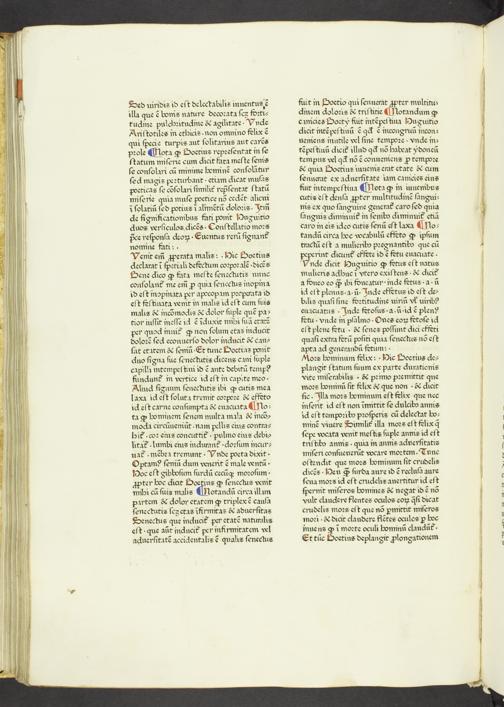 Sed viridis id est delectabilis iuuentus ē
illa que ē bonis nature decorata scʒ forti-
tudine pulcritudine & agilitate · Vnde
Aristotiles in ethicis · non omnino felix ē
qui specie turpis aut solitarius aut carēs
prole ¶Nota ꝙ Boetius representat in se
statum miserie cum dicit fata meste senis
se consolari cū minime hominē consolūtur
sed magis perturbant · etiam dicat musas
poeticas se cōsolari similiter repēsentat statū
miserie quia muse poetice nō cedūt alicui
ī solatiū sed potius ī alimētū doloris ·
de significationibus fati ponit Huguitio
duos versiculos dicēs · Constellatio mors
ꝓce responsa deoꝝ · Euentus reꝝ signant
nomine fati : ·
Venit eim ꝓperata malis : · Hic Boetius
declarat ī speciali defectum corporalē · dicēs
Bene dico ꝙ fata meste senectutis nunc
consolant me eim ꝓ quia senectus inopina
id est inopinata per apocopam preparata id
est festinata venit in malis id est cum suis
malis & incōmodis & dolor suple que pa-
tior iussit inesse id ē iduxit mibi suā etatē
per quod inuit ꝙ non solum etas inducit
dolorē sed econuerso dolor inducit & cau-
sat etatem & seniū · Et tunc Boetius ponit
duo signa sue senectutis dicens eam suple
capilli intempestiui id ē ante debitū temp⁹
fundunt in vertice id est in capite meo ·
Aliud signum senectutis ibi ꝙ cutis mea
laxa id est soluta tremit corpore & effeto
id est carne consumpta & euacuata ¶No-
ta ꝙ hominem senem multa mala & incō-
moda circūueniūt · nam pellis eius contra-
hit · cor eius concutit · pulmo eius debi-
litat · lumbi eius indurant · dorsum incur-
uat · mēbra tremunt · Vnde poeta dixit ·
Optams seniū dum venerit ē male ventū ·
Hoc est gibbosum surdū cecūꝙ morosum ·
ꝓpter hoc dicit Boetius ꝙ senectus venit
mibi cū suis malis ¶Notandū circa illam
partem & dolor etatem ꝙ triplex ē causa
senectutis scʒ etas ifirmitas & aduersitas
Senectus que inducit per etatē naturalis
est · que aūt inducit per infirmitatem vel
aduersitatē accidentalis ē qualis senectus
fuit in Boetio qui senuerat ꝓpter multitu-
dinem doloris & tristitie ¶Notandum ꝙ
canicies Boetij fuit intēpestiua Huguitio
dicit intēpestiuū ē qd ē incongruū incon-
ueniens inutile vel sine tempore · vnde in-
tēpestiuū dicit illud qd nō habeat ydoneū
tempus vel qd nō ē conueniens ꝓ tempore
& quia Boetius iuuenis erat etate & cum
senuerat ex aduersitate iam canicies eius
fuit intempestiua ¶Nota ꝙ in iuuenibus
cutis est densa ꝓpter multitudinē sangui-
nis ex quo sanguine generat caro sed quia
sanguis diminuit in senibus diminuit etiā
caro in eis ideo cutis senū est laxa ¶No-
tandū circa hoc vocabulū effeto ꝙ ipsum
tractū est a mulieribus pregnantibus que cū
peperint dicunt effete id ē fetu euacuate ·
Vnde dicit Huguitio ꝙ fetus est natus
mulieris adhuc ī vtero existens · & dicit
a foueo eo ꝙ ibi foueatur · inde fetus · a · ū
id est plenus · a · ū · Inde effetus id est de-
bilis quasi sine fortitudine virium vel viribus
euacuatus · Inde fetosus · a · ū · id ē plen⁹
fetu · vnde in psalmo · Oues eoꝝ fetose id
est plene fetu · & senes possunt dici effeti
quasi extra fetū positi quia senectus nō est
apta ad generandū fetum : ·
Mors hominum felix : · Hic Boetius de-
plangit statum suum ex parte durationis
vite miserabilis · & primo premittit que
mors hominū sit felix & que non · & dicit
sic · Illa mors hominum est felix que nec
inserit id est non īmittit se dulcibus annis
id est temporibus prosperis cū delectat ho-
minē viuere Similiter illa mors est felix ꝙ
sepe vocata venit mestis suple annis id est
tristibus annis · quia in annis aduersitatis
miseri consueuerūt vocare mortem · Tunc
ostendit que mors hominum sit crudelis
dicēs · Heu ꝙ surba aure id ē reclusa aure
seua mors id est crudelis auertitur id est
spernit miseros homines & negat id ē nō
vult claudere flentes oculos eoꝝ qsi dicat
crudelis mors est que nō ꝑmittit miseros
mori · & dicit claudere flētes oculos ꝓ hoc
inuens ꝙ ī morte oculi hominū claudunt ·
Et tūc Boetius deplangit ꝓlongationem